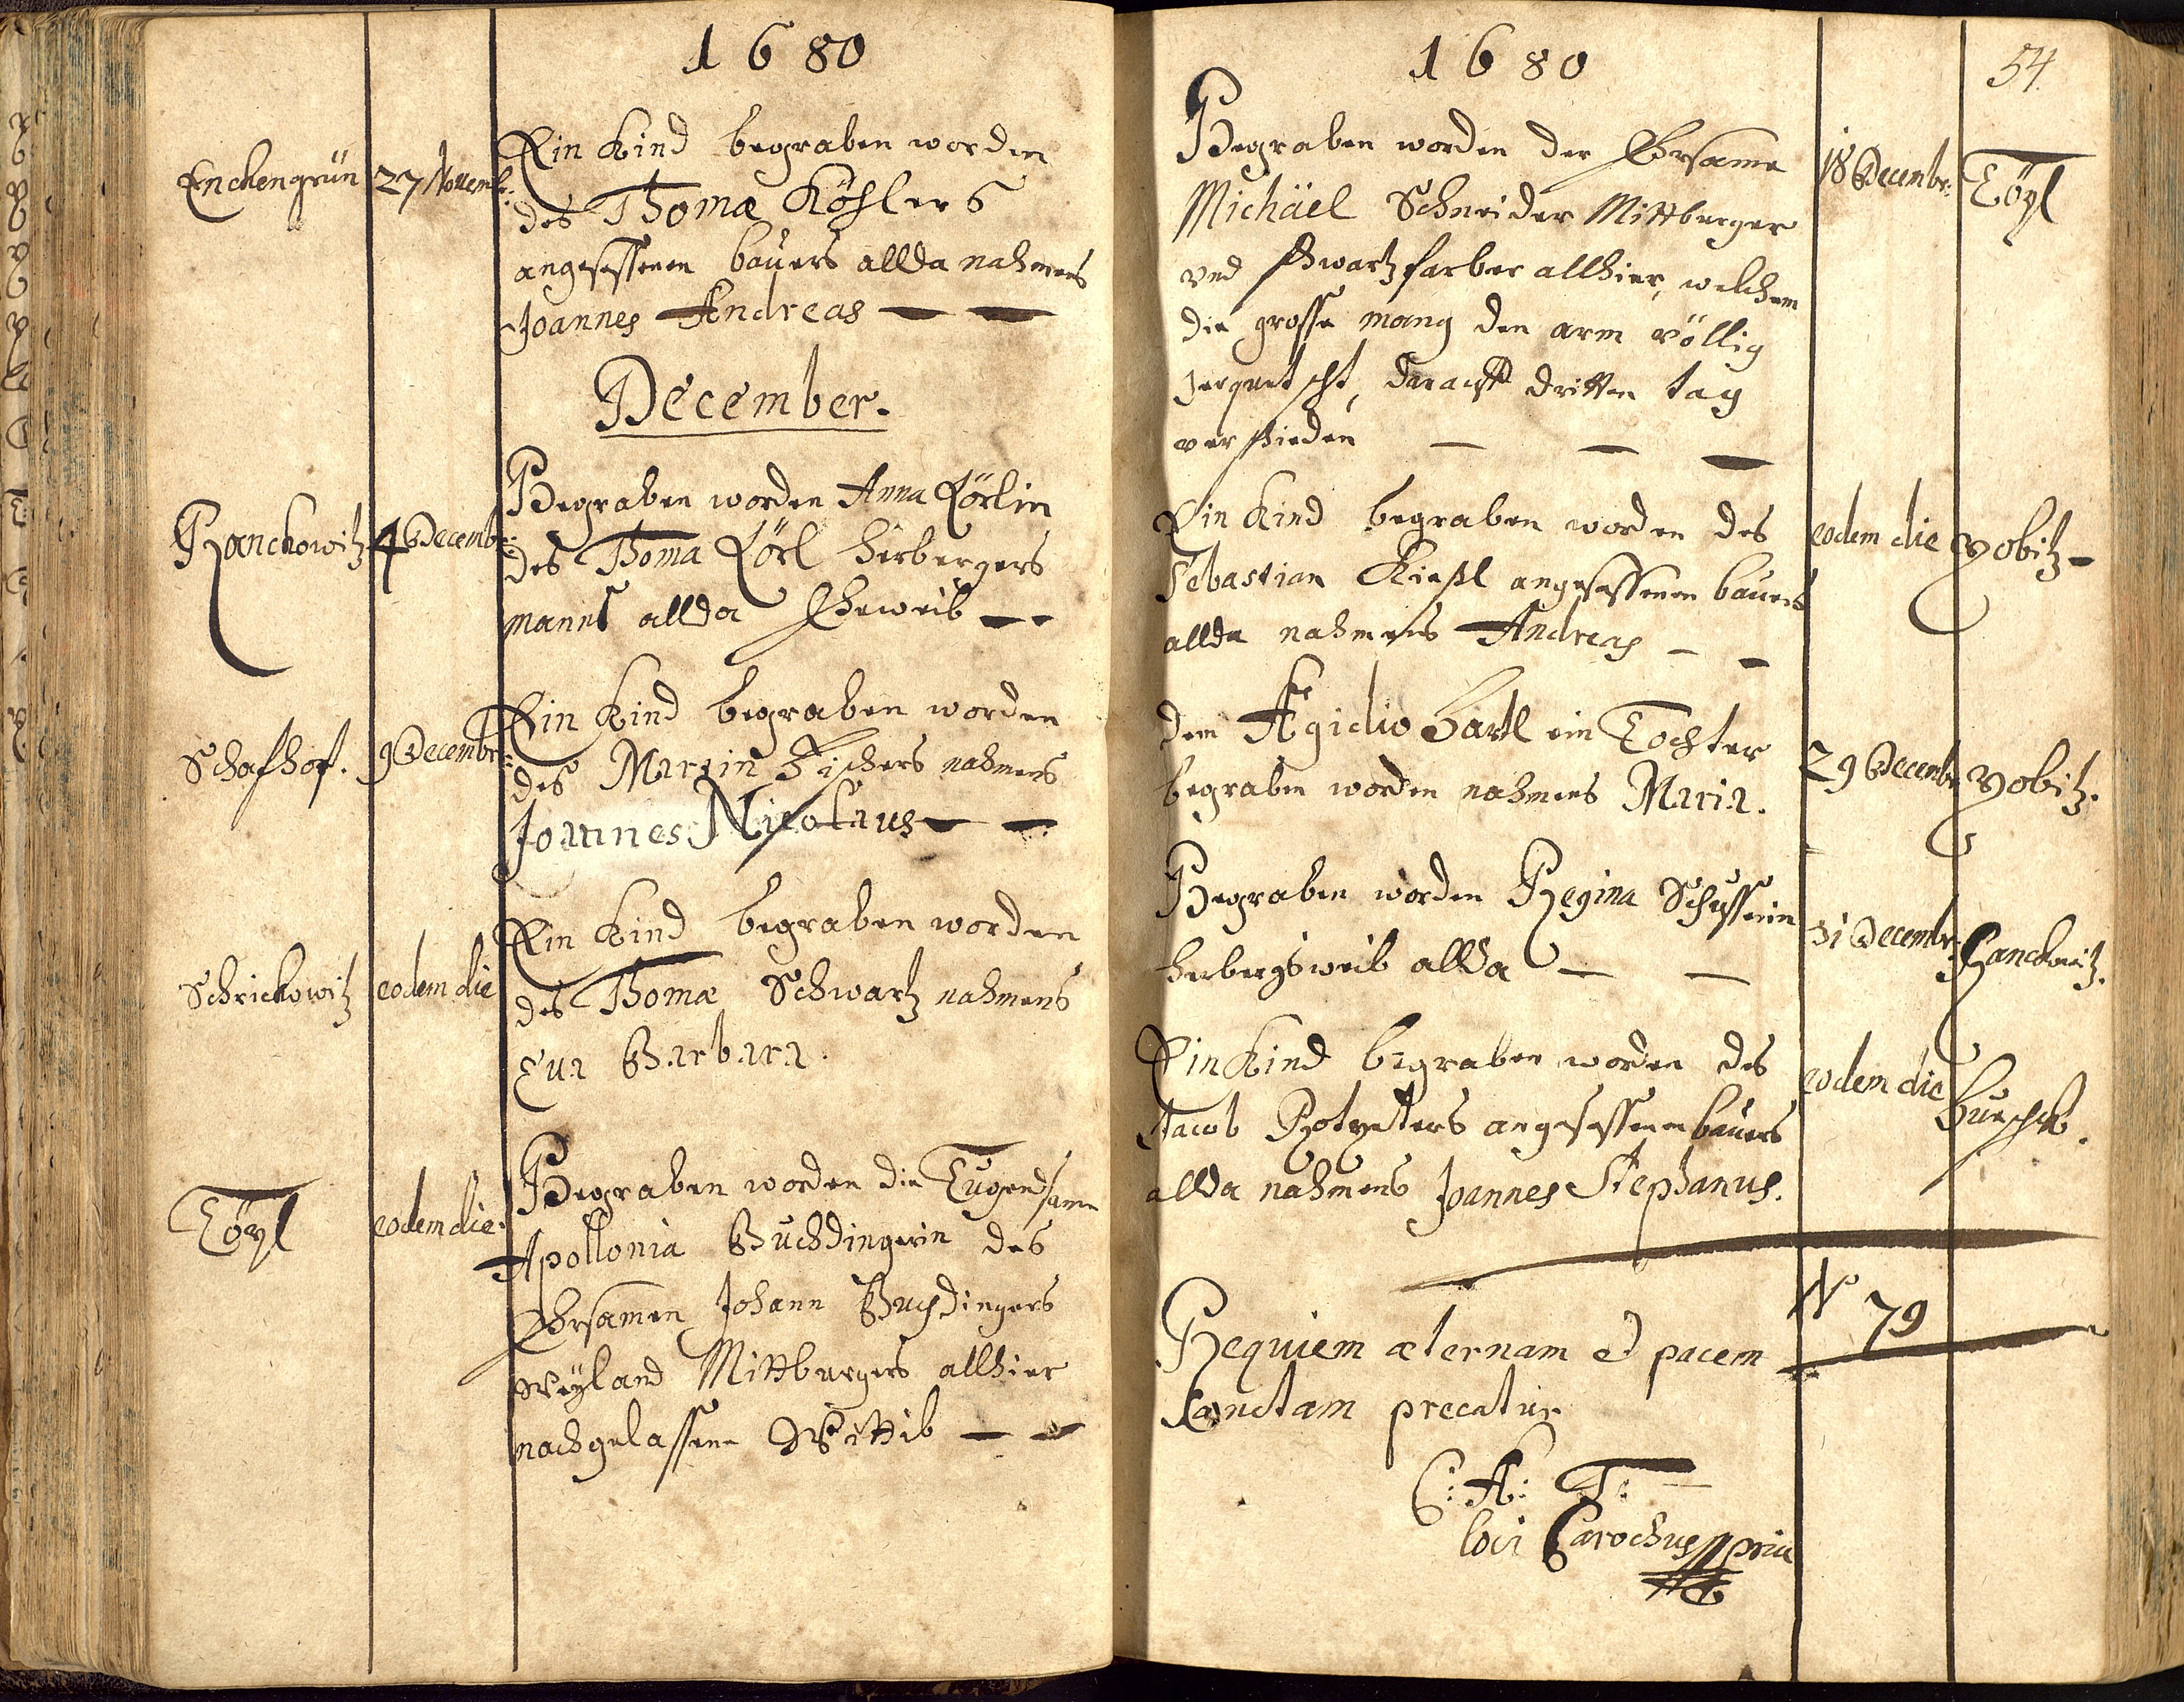 1680
Enckengrün
27 Novemb:
Ein Kind begraben worden
des Thomæ Köhlers
angesessenen bauers allda nahmens
Joannes Andreas
December.
Ranckowitz
4 Decembr:
Begraben worden Anna Lörlin
des Thoma Lörl herbergers
manns allda Eheweib
Schafhof.
9 Decembr:
Ein Kind begraben worden
des Martin Fischers nahmens
Joannes Nicolaus
Schrickowitz
eodem die
Ein Kind begraben worden
des Thomæ Schwartz nahmens
Eva Barbara.
Töpl
eodem die.
Begraben worden die Tugendsame
Apollonia Buchdingerin des
Ehrsamen Johann Buchdingers
weyland Mittburgers allhier
nachgelassene Wittib
1680
54.
Begraben worden der Ehrsame
18 Decembr:
Töpl
Michäel Schneider Mittburger
vnd schwartzfarber allhier, welchem
die grosse mang den arm völlig
zerquetscht, darauff dritten tag
verschieden
Ein Kind begraben worden des
eodem die
Sebastian Kießl angesessenen bauers
allda nahmens Andreas
dem Ægidio Hartl ein Tochter
29 Decembr
begraben worden nahmens Maria.
Begraben worden Regina Schusserin
31 Decembr:
Ranckowitz.
herbergsweib allda
Ein Kind begraben worden des
eodem die
Jacob angesessenen bauers
allda nahmens Joannes Stephanus.
N 79
Requiem æternam et pacem
sanctam precatur
C: A: T:
loci Parochus